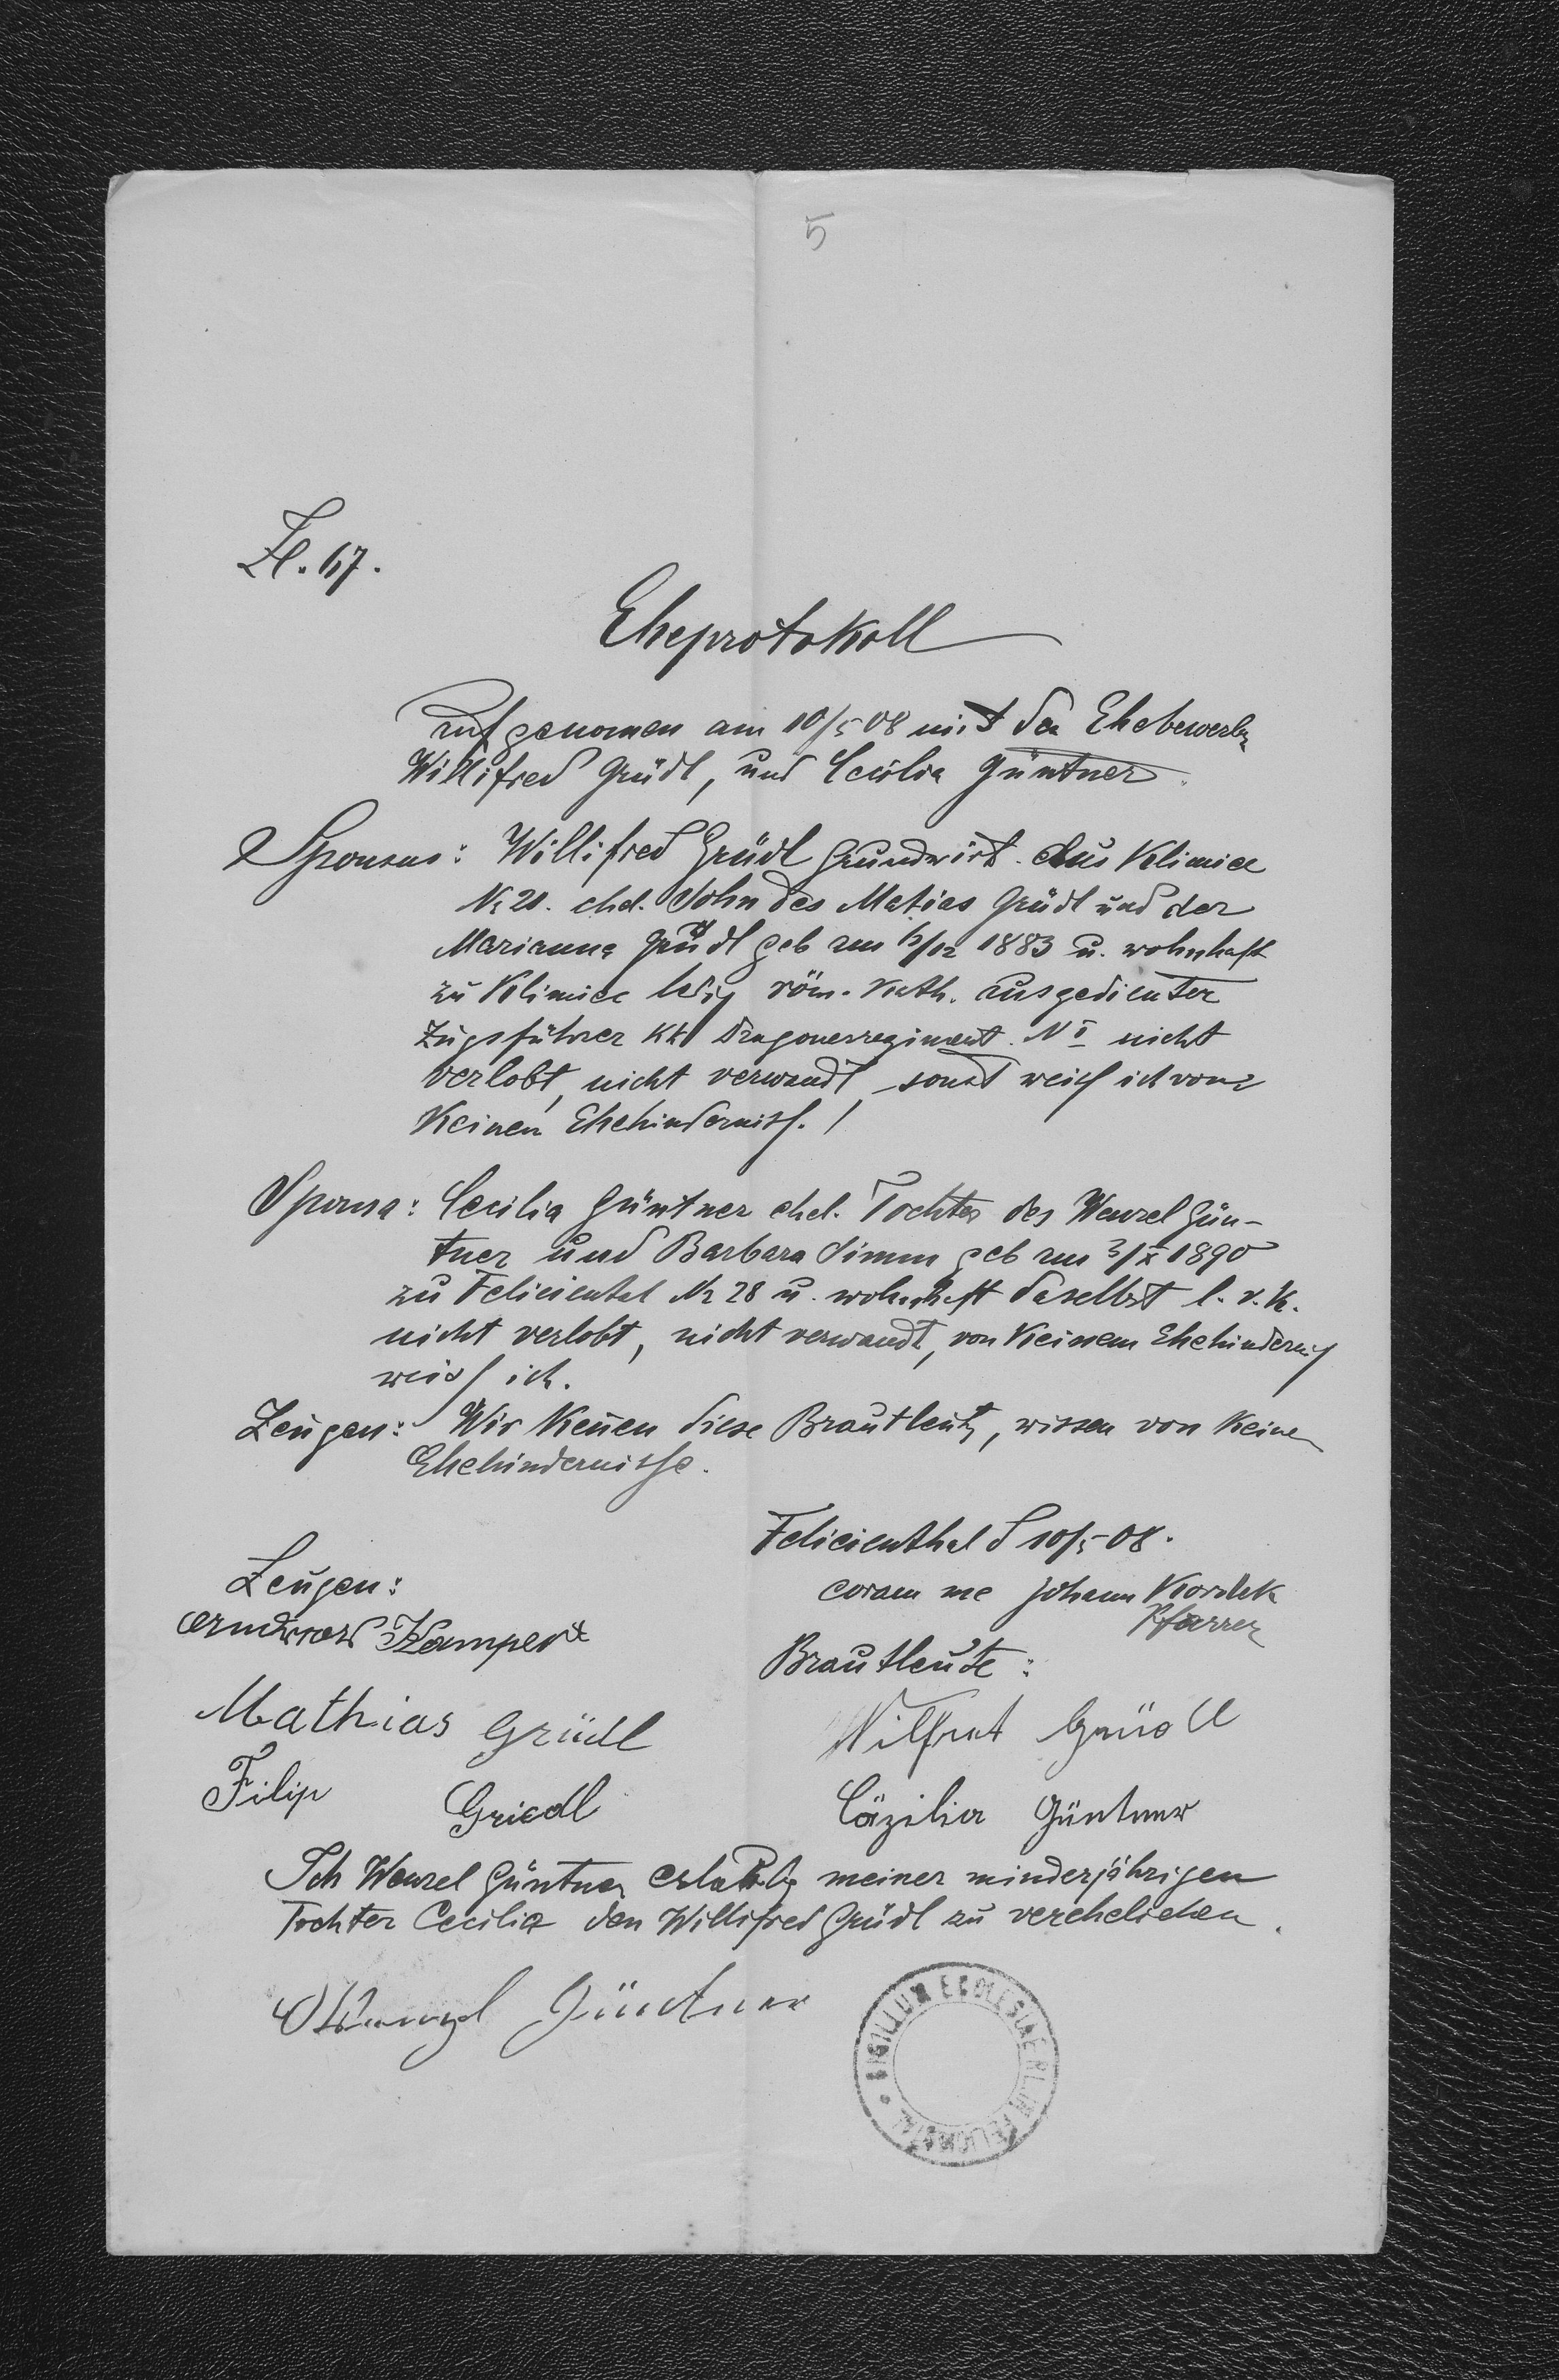 5
Zl. 67.
Eheprotokoll
aufgenomen am 10/5 08 mit den Ehebewerber
Willifred Grüdl, und Cecilia Güntner
Sponsus: Willifred Grüdl Grundwirt aus Klimiec
Nr 20. ehel. Sohn des Matias Grüdl und der
Marianna Grüdl geb am /12 1883 u. wohnhaft
zu Klimiec ledig röm. kath. ausgedienter
Zugsführer kk Dragonerregiment. N nicht
verlobt, nicht verwandt, sonst weiss ich von
keinen Ehehinderniss. /
Sponsa: Cecilia Güntner ehel. Tochter des Wenzel Gün-
tner und Barbara Simm geb am 3/X 1890
zu Feliciental Nr 28 u. wohnhaft daselbst l. r. k.
nicht verlobt, nicht verwandt, von keinem Ehehinderniss
weiss ich.
Zeugen: Wir kenen diese Brautleute, wissen von keinen
Ehehindernisse.
Felicienthal d 10/5 08.
coram me Johann Kordek
Pfarrer
Zeugen:
Kampert
Mathias Grüdl
Filip Griedl
Brautleute:
Wilfret Grüdl
Cäzilia Güntner
Ich Wenzel Güntner erlaube meiner minderjährigen
Tochter Cecilia den Willifred Grüdl zu verehelichen.
Wenzl Güntner
SIGILLUM ECCLESIAE R.L. IN FELICIENTAL